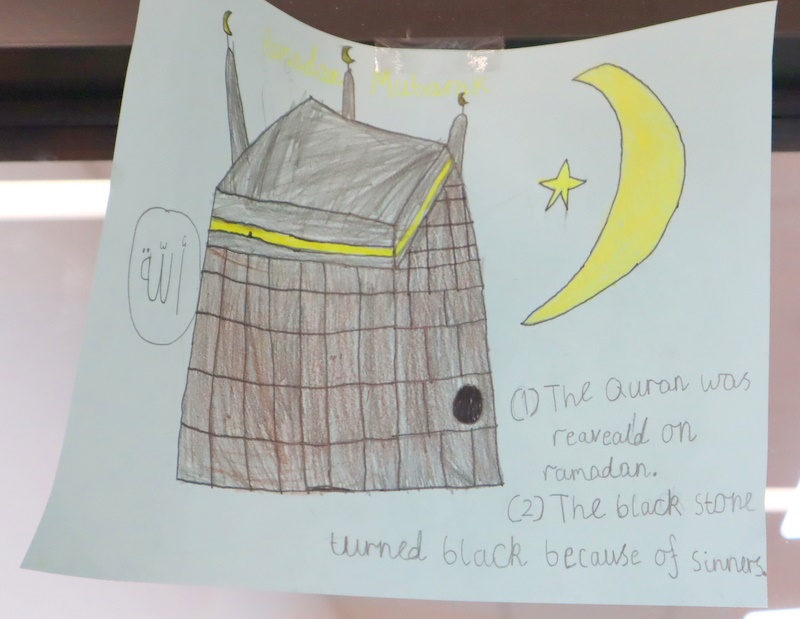 Ramadan Mubarak
الله
(1) The Quran was
reaveald on
ramadan.
(2) The black stone
turned black because of sinners.